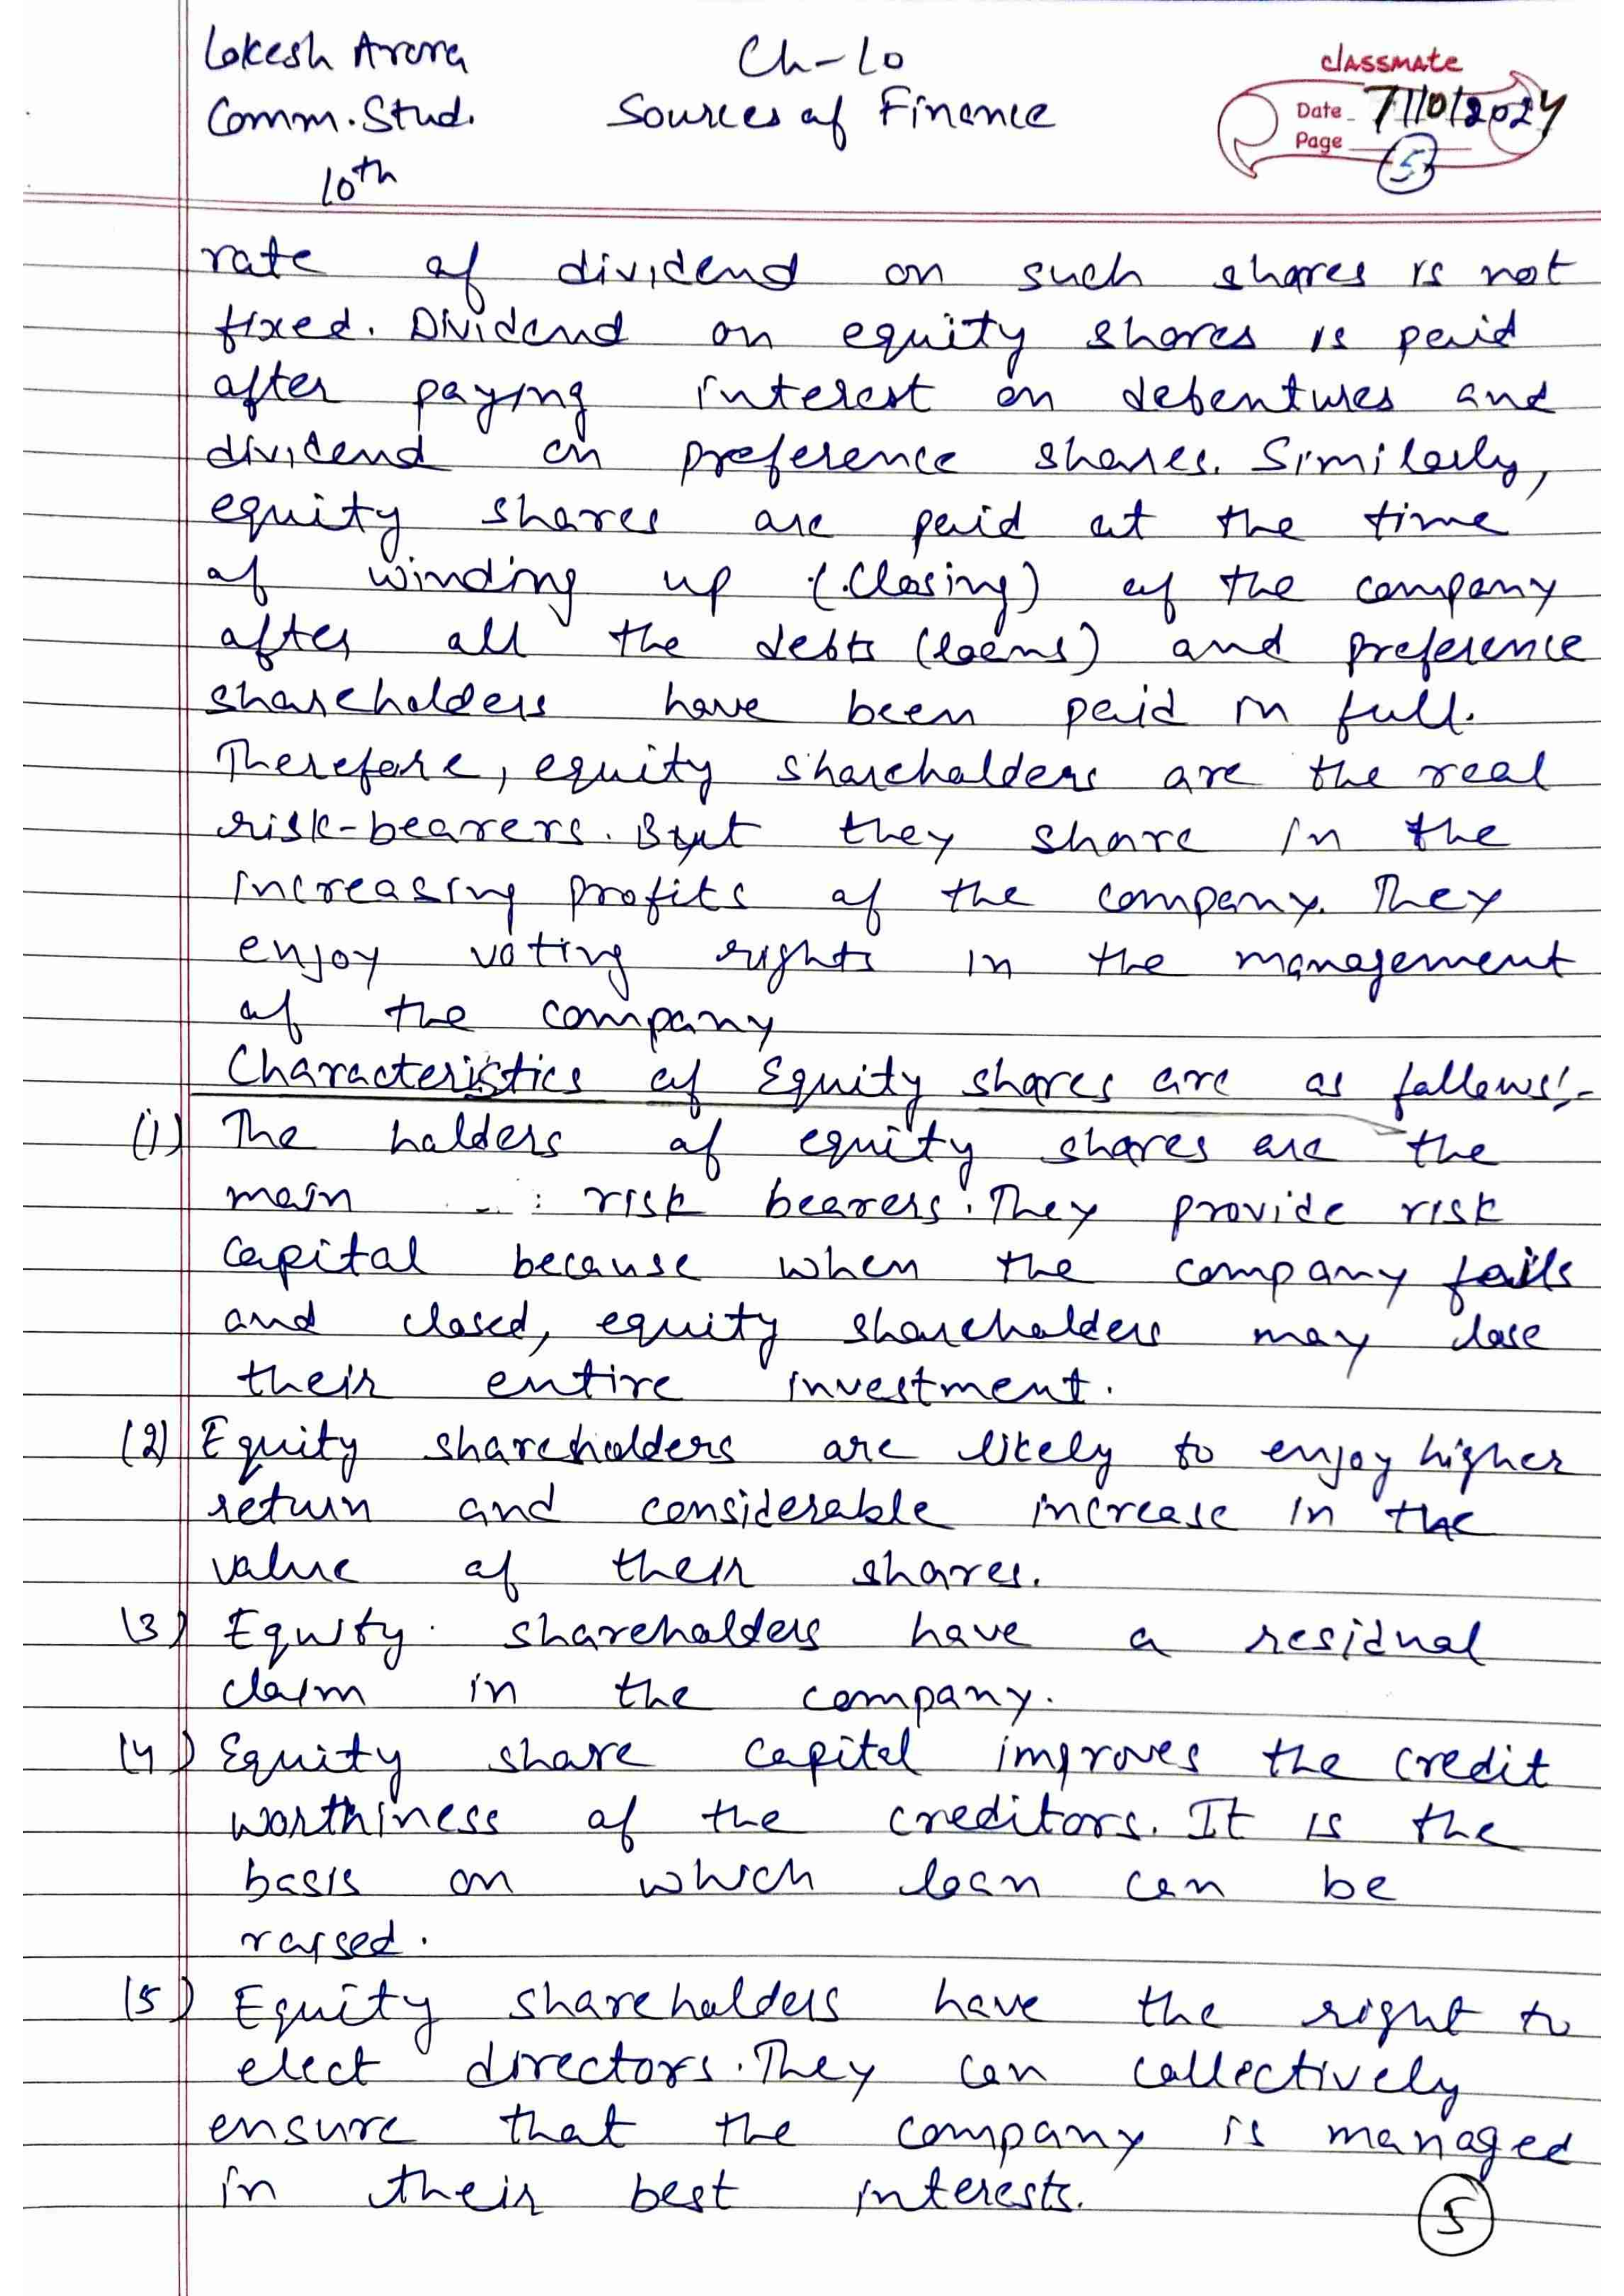 Lokesh Arora
Ch-10
classmate
Comm. Stud.
Sources of Finance
Date 7/10/2024
Page 5
10th
rate of dividend on such shares is not
fixed. Dividend on equity shares is paid
after paying interest on debentures and
dividend on preference shares. Similarly,
equity shares are paid at the time
of winding up (closing) of the company
after all the debts (loans) and preference
shareholders have been paid in full.
Therefore, equity shareholders are the real
risk-bearers. But they share in the
increasing profits of the company. They
enjoy voting rights in the management
of the company
Characteristics of Equity shares are as follows:-
(1) The holders of equity shares are the
main risk bearers. They provide risk
capital because when the company fails
and closed, equity shareholders may lose
their entire investment.
(2) Equity shareholders are likely to enjoy higher
return and considerable increase in the
value of their shares.
(3) Equity shareholders have a residual
claim in the company.
(4) Equity share capital improves the credit
worthiness of the creditors. It is the
basis on which loan can be
raised.
(5) Equity shareholders have the right to
elect directors. They can collectively
ensure that the company is managed
in their best interests.
5